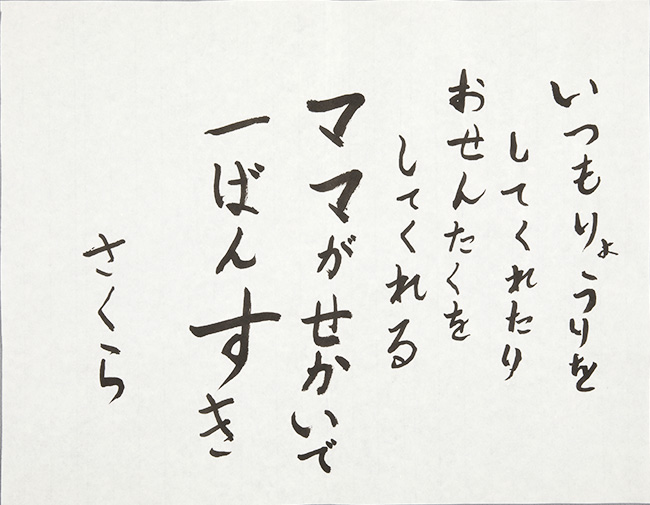 いつもりょうりを
してくれたり
おせんたくを
してくれる
ママがせかいで
一ばんすき
さくら